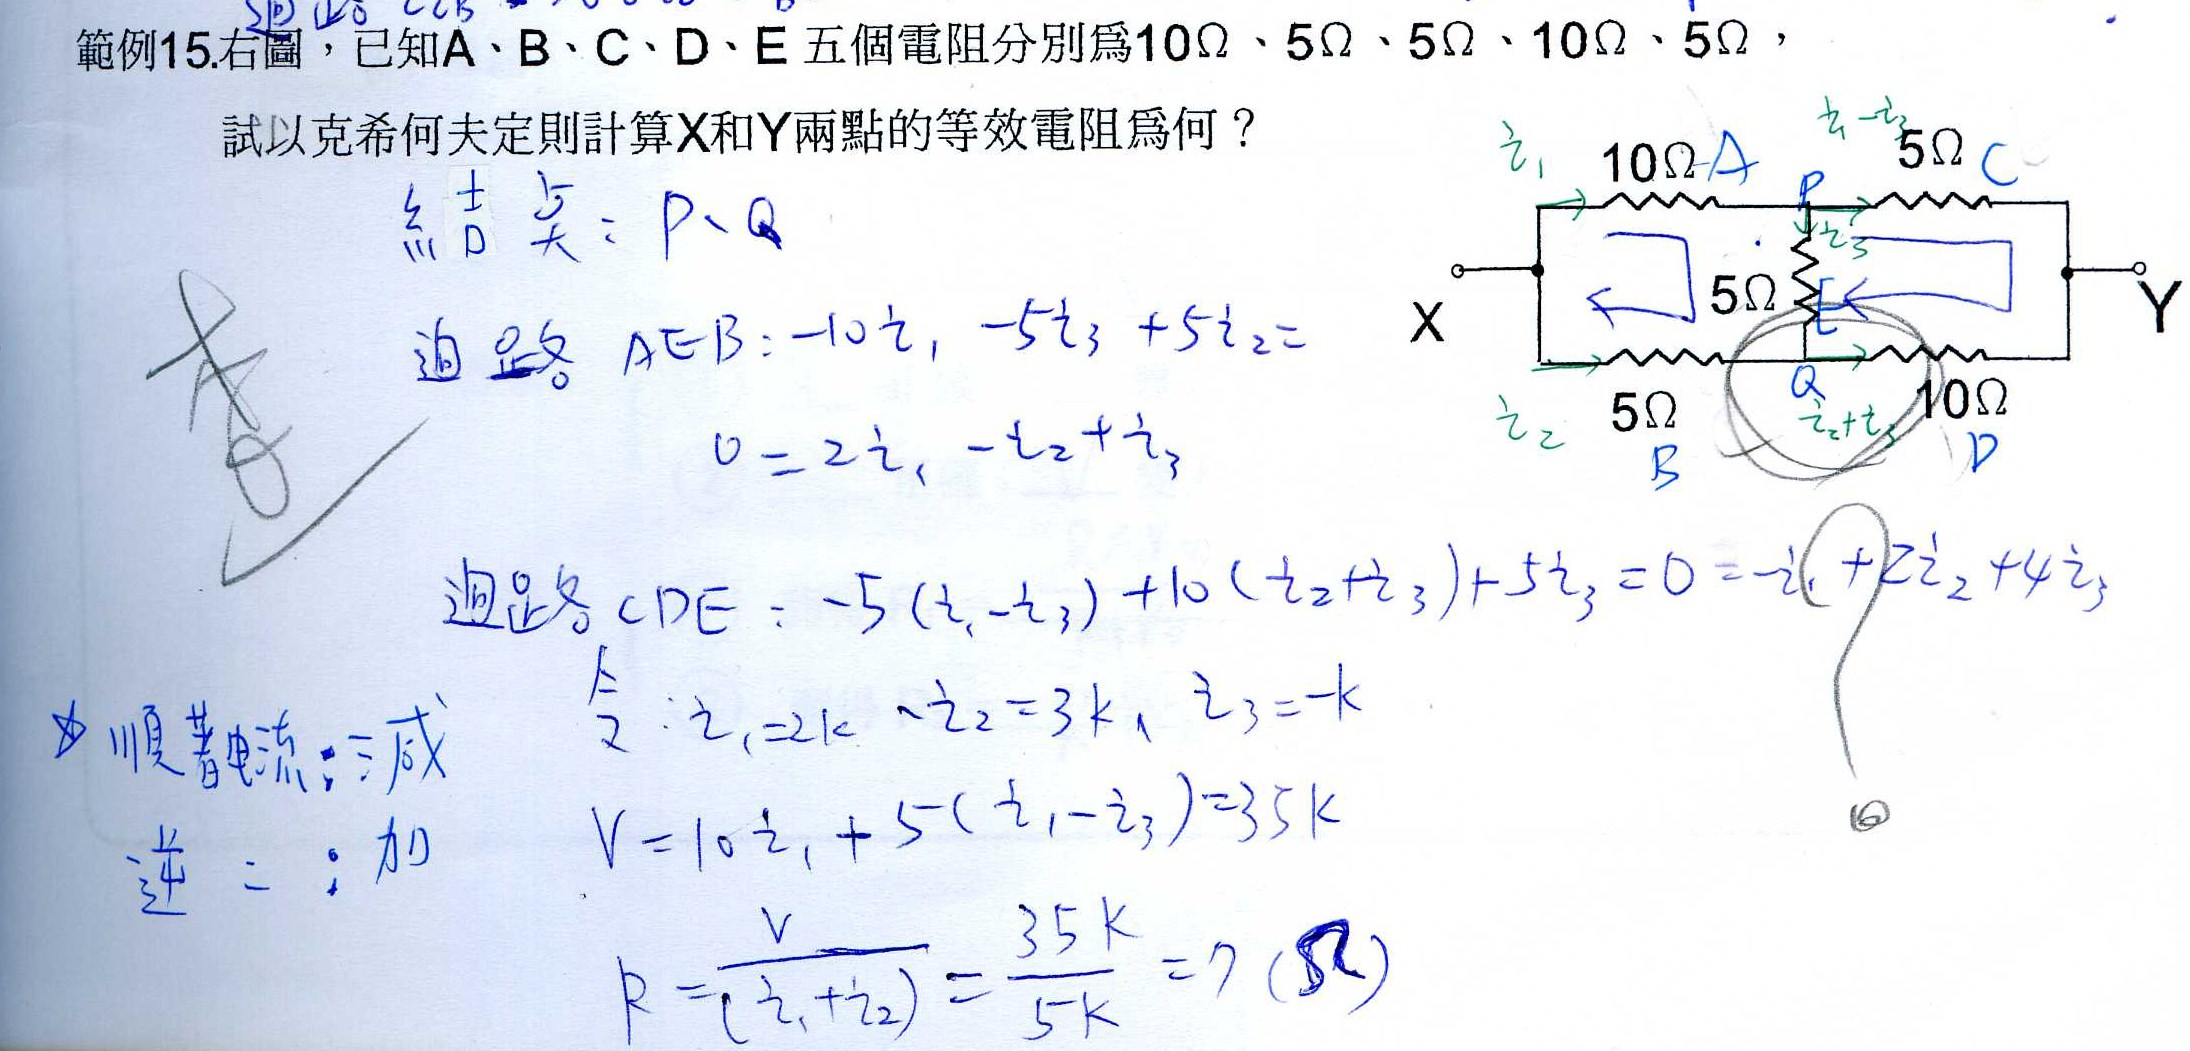 迴路
範例15.右圖，已知A、B、C、D、E 五個電阻分別爲10Ω、5Ω、5Ω、10Ω、5Ω，
試以克希何夫定則計算X和Y兩點的等效電阻爲何？
結点：P、Q
迴路 AEB：-10i₁ -5i₃ +5i₂=
0=2i₁ -i₂+i₃
迴路 CDE：-5(i₁-i₃)+10(i₂+i₃)+5i₃=0=-i₁+2i₂+4i₃
令：i₁=2k、i₂=3k、i₃=-k
V=10i₁+5(i₁-i₃)=35k
R=V/(i₁+i₂)=35k/5k=7(Ω)
順著电流：減
逆=：加
i₁
10Ω A
P
i₁-i₃
5Ω C
i₃
X
5Ω
E
Y
i₂
5Ω
B
Q
i₂+i₃
10Ω
D